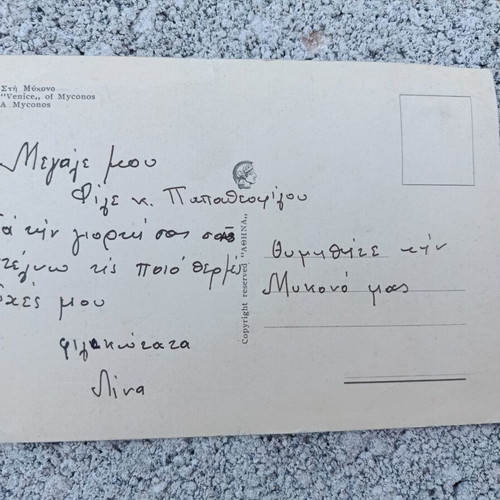 Στή Μύκονο
"Venice„ of Myconos
A Myconos
Μεγάλε μου
Φίλε κ. Παπαθεοφίλου
ά τήν γιορτή σας σας
τέλνω τίς ποιό θερμές
χές μου
φιλικώτατα
Λίνα
Copyright reserved "ΑΘΗΝΑ„
Θυμηθήτε τήν
Μυκονό μας